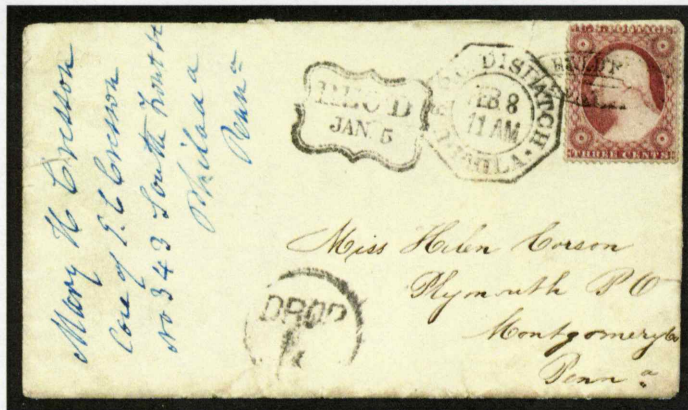 Mary H Cresson
Care of E. C. Cresson
No 343 South Fourth
Philada
Penna
REC'D
JAN. 5
DISPATCH
FEB 8
11 AM
PHILA.
THREE CENTS
DROP
Miss Helen Corson
Plymouth P O
Montgomery Co
Penna